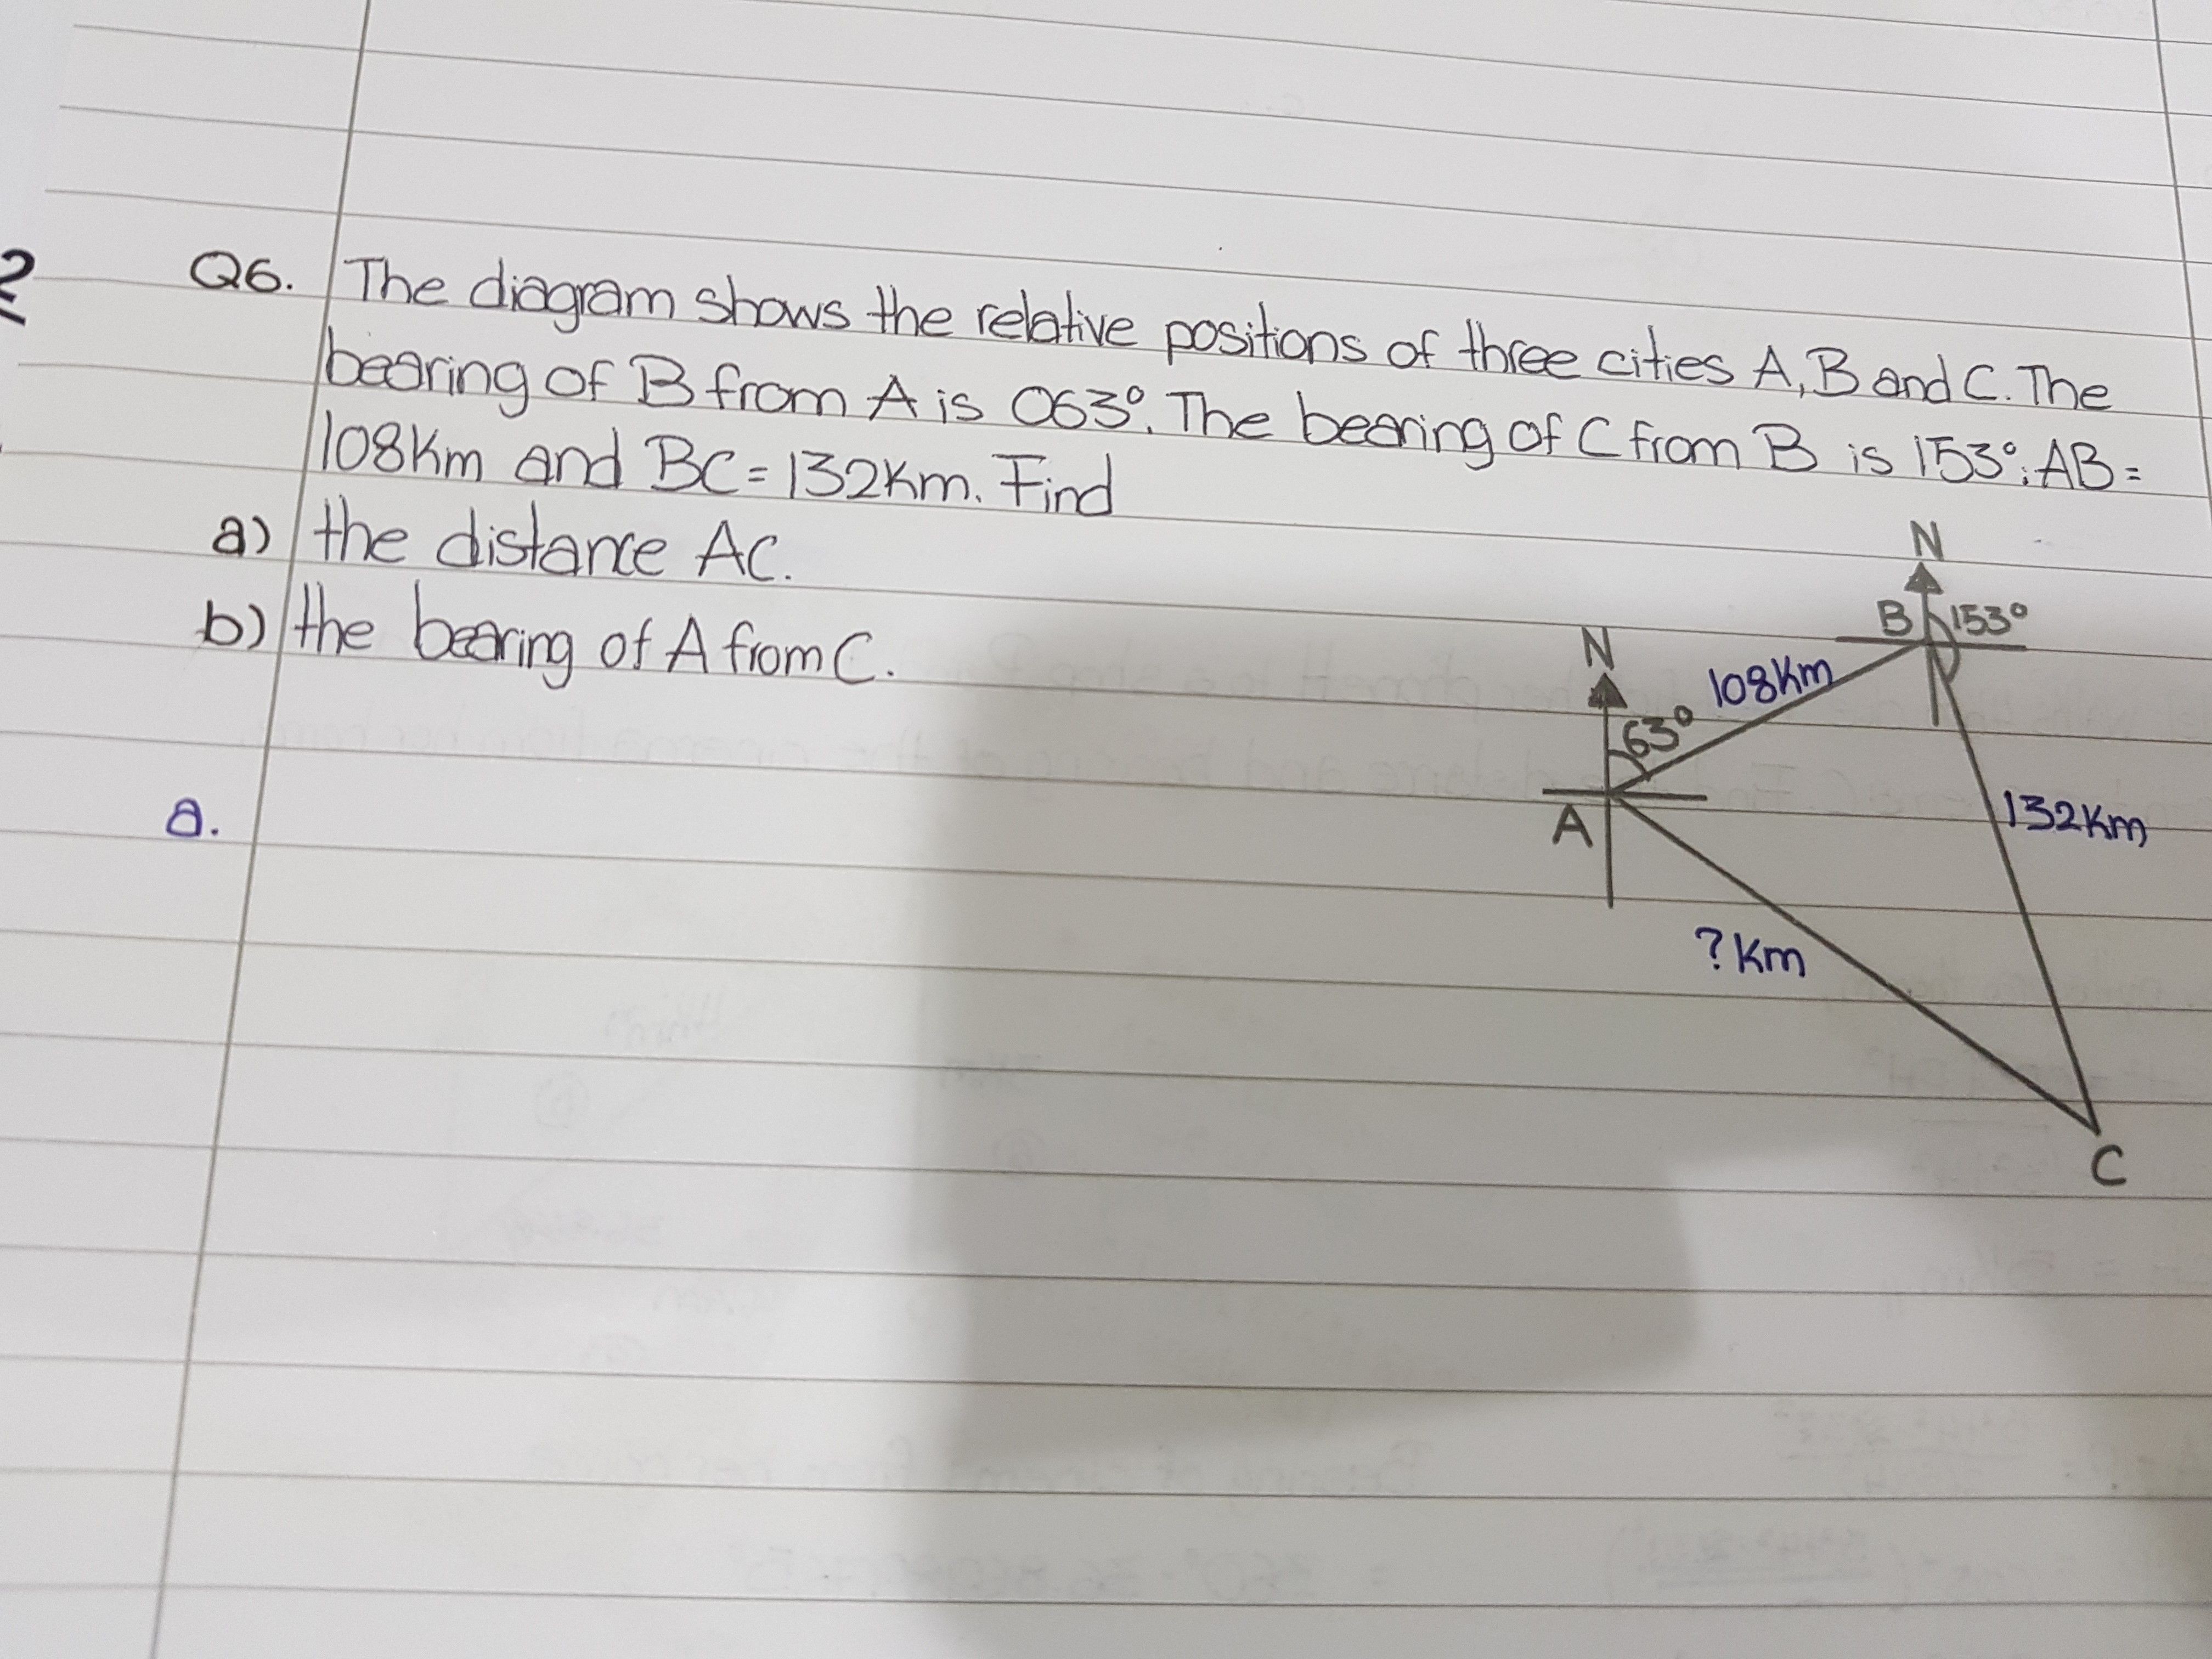 2
Q6. The diagram shows the relative positions of three cities A, B and C. The
bearing of B from A is 063°. The bearing of C from B is 153°. AB =
108km and BC = 132km. Find
a) the distance AC.
b) the bearing of A from C.
N
B 153°
N
108km
63°
A
132km
? km
C
a.